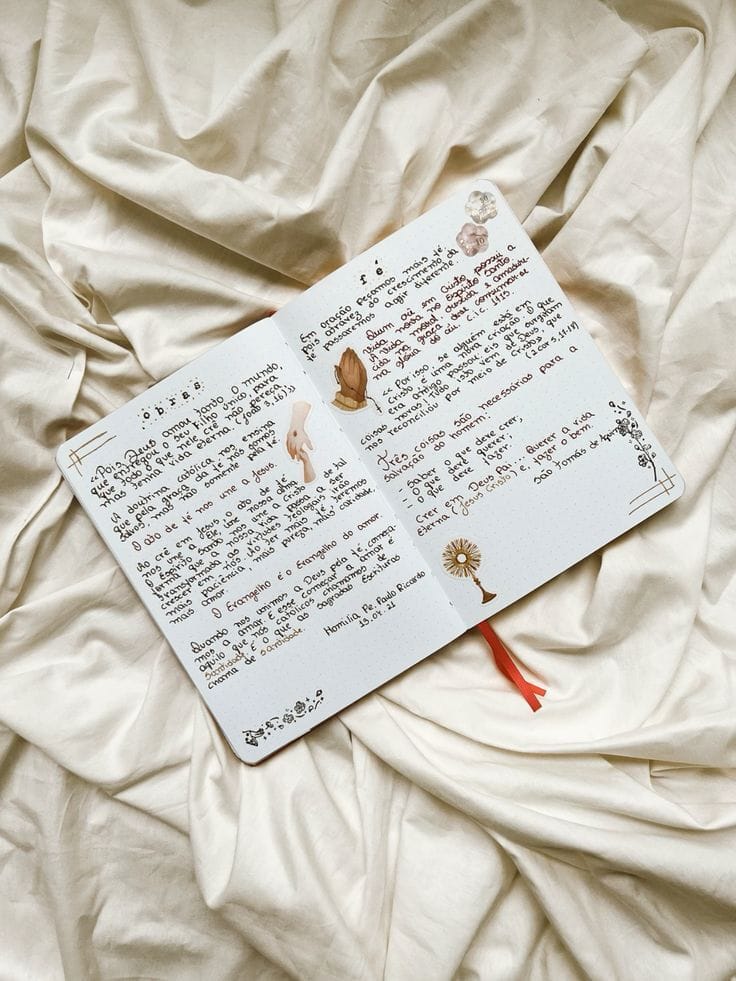 obras
«Pois Deus amou tanto o mundo,
que entregou seu Filho único, para
que todo o que nele crê não pereça
mas tenha vida eterna. (João 3,16)»
A doutrina católica nos ensina
que pela graça da fé nós somos
salvos, mas não somente pela fé.
O ato de fé nos une a Jesus.
Ao crê em Jesus, o ato de fé
nos une a Ele, une nossa alma
o Espírito Santo nos une a Cristo
forma que a nossa vida passa a ser
transformada as virtudes teologais irão
crescer em nós, vão ser mais,
mais paciência, mais pureza, mais caridade,
mais amor.
O Evangelho é o Evangelho do amor
Quando nos unimos a Deus pela fé, começa-
mos a amar. E esse começar do amar é
aquilo que nós católicos chamamos de
santidade. É o que as sagradas Escrituras
chama de santidade.
Homilia Pe. Paulo Ricardo
15.04.21
fé
Em oração peçamos mais fé,
pois através do crescimento da
fé passaremos agir diferente.
Quem crê em Cristo possui a
vida nova no Espírito Santo
A vida na graça
na glória do céu. C.I.C. 1715
«Por isso, se alguém está em
Cristo é uma nova criação. O que
era antigo passou, eis que surgiram
coisas novas. Tudo isso vem de Deus, que
nos reconciliou por meio de Cristo» (2cor 5,17-18)
Três coisas são necessárias para a
salvação do homem:
- Saber o que deve crer,
- o que deve querer,
- o que deve fazer;
Crer em Deus Pai. Querer a vida
eterna (Jesus Cristo) e, fazer o bem.
São Tomás de Aquino